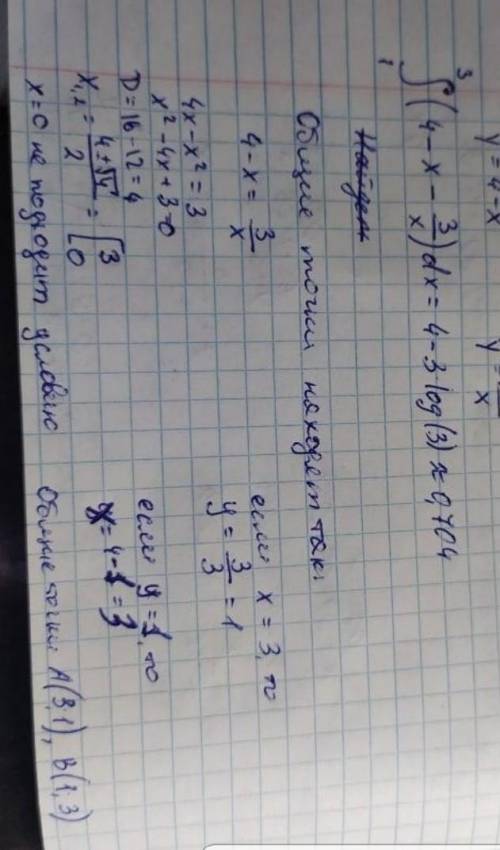 y = 4-x y =
∫₁³ (4 - x - 3/x) dx = 4 - 3 log(3) ≈ 0,704
Найдем
Общие точки находят так:
4 - x = 3/x
4x - x² = 3
x² - 4x + 3 = 0
D = 16 - 12 = 4
x₁,₂ = (4 ± √4)/2 = [3 0
x = 0 не подходит условию
если x = 3, то
y = 3/3 = 1
если y = 1, то
x = 4 - 1 = 3
Общие точки A(3,1), B(1,3)